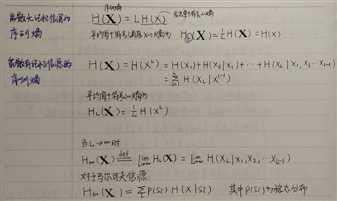 序列熵
离散无记忆信源的
序列熵
H(X) = L H(X)
平均每个符号(消息)熵为 H_L(X) = 1/L H(X) = H(X)
离散有记忆信源的
序列熵
H(X) = H(X^L) = H(X₁) + H(X₂|X₁) + ⋯ + H(X_L|X₁, X₂⋯X_{L-1})
= Σ H(X_l|X^{l-1})
平均每个符号熵为
H_L(X) = 1/L H(X^L)
当L→∞时
H_∞(X) def= lim H_L(X) = lim H(X_L|X₁, X₂, ⋯X_{L-1})
L→∞ L→∞
对于马尔可夫信源
H_∞(X) = Σ P(S_i) H(X|S_i) 其中P(S_i)为稳态分布